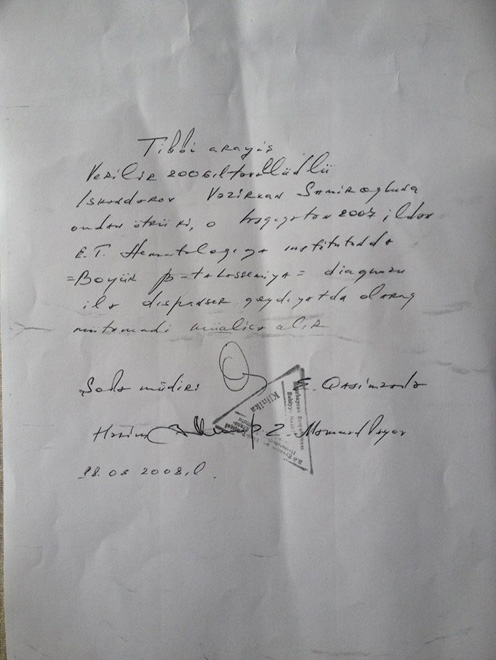 Tibbi arayış
Verilir 2006 il təvəllüdlü
İskəndərov Vəzirxan Samir oğluna
ondan ötrü ki, o həqiqətən 2007 ildən
E.T. Hematologiya institutunda
=Böyük β-talassemiya= diaqnozu
ilə dispanser qeydiyatda olaraq
mütəmadi müalicə alır
Şöbə müdiri Qasımzadə
Həkim Z. Məmmədliyev
Klinika
.08 2008 il.